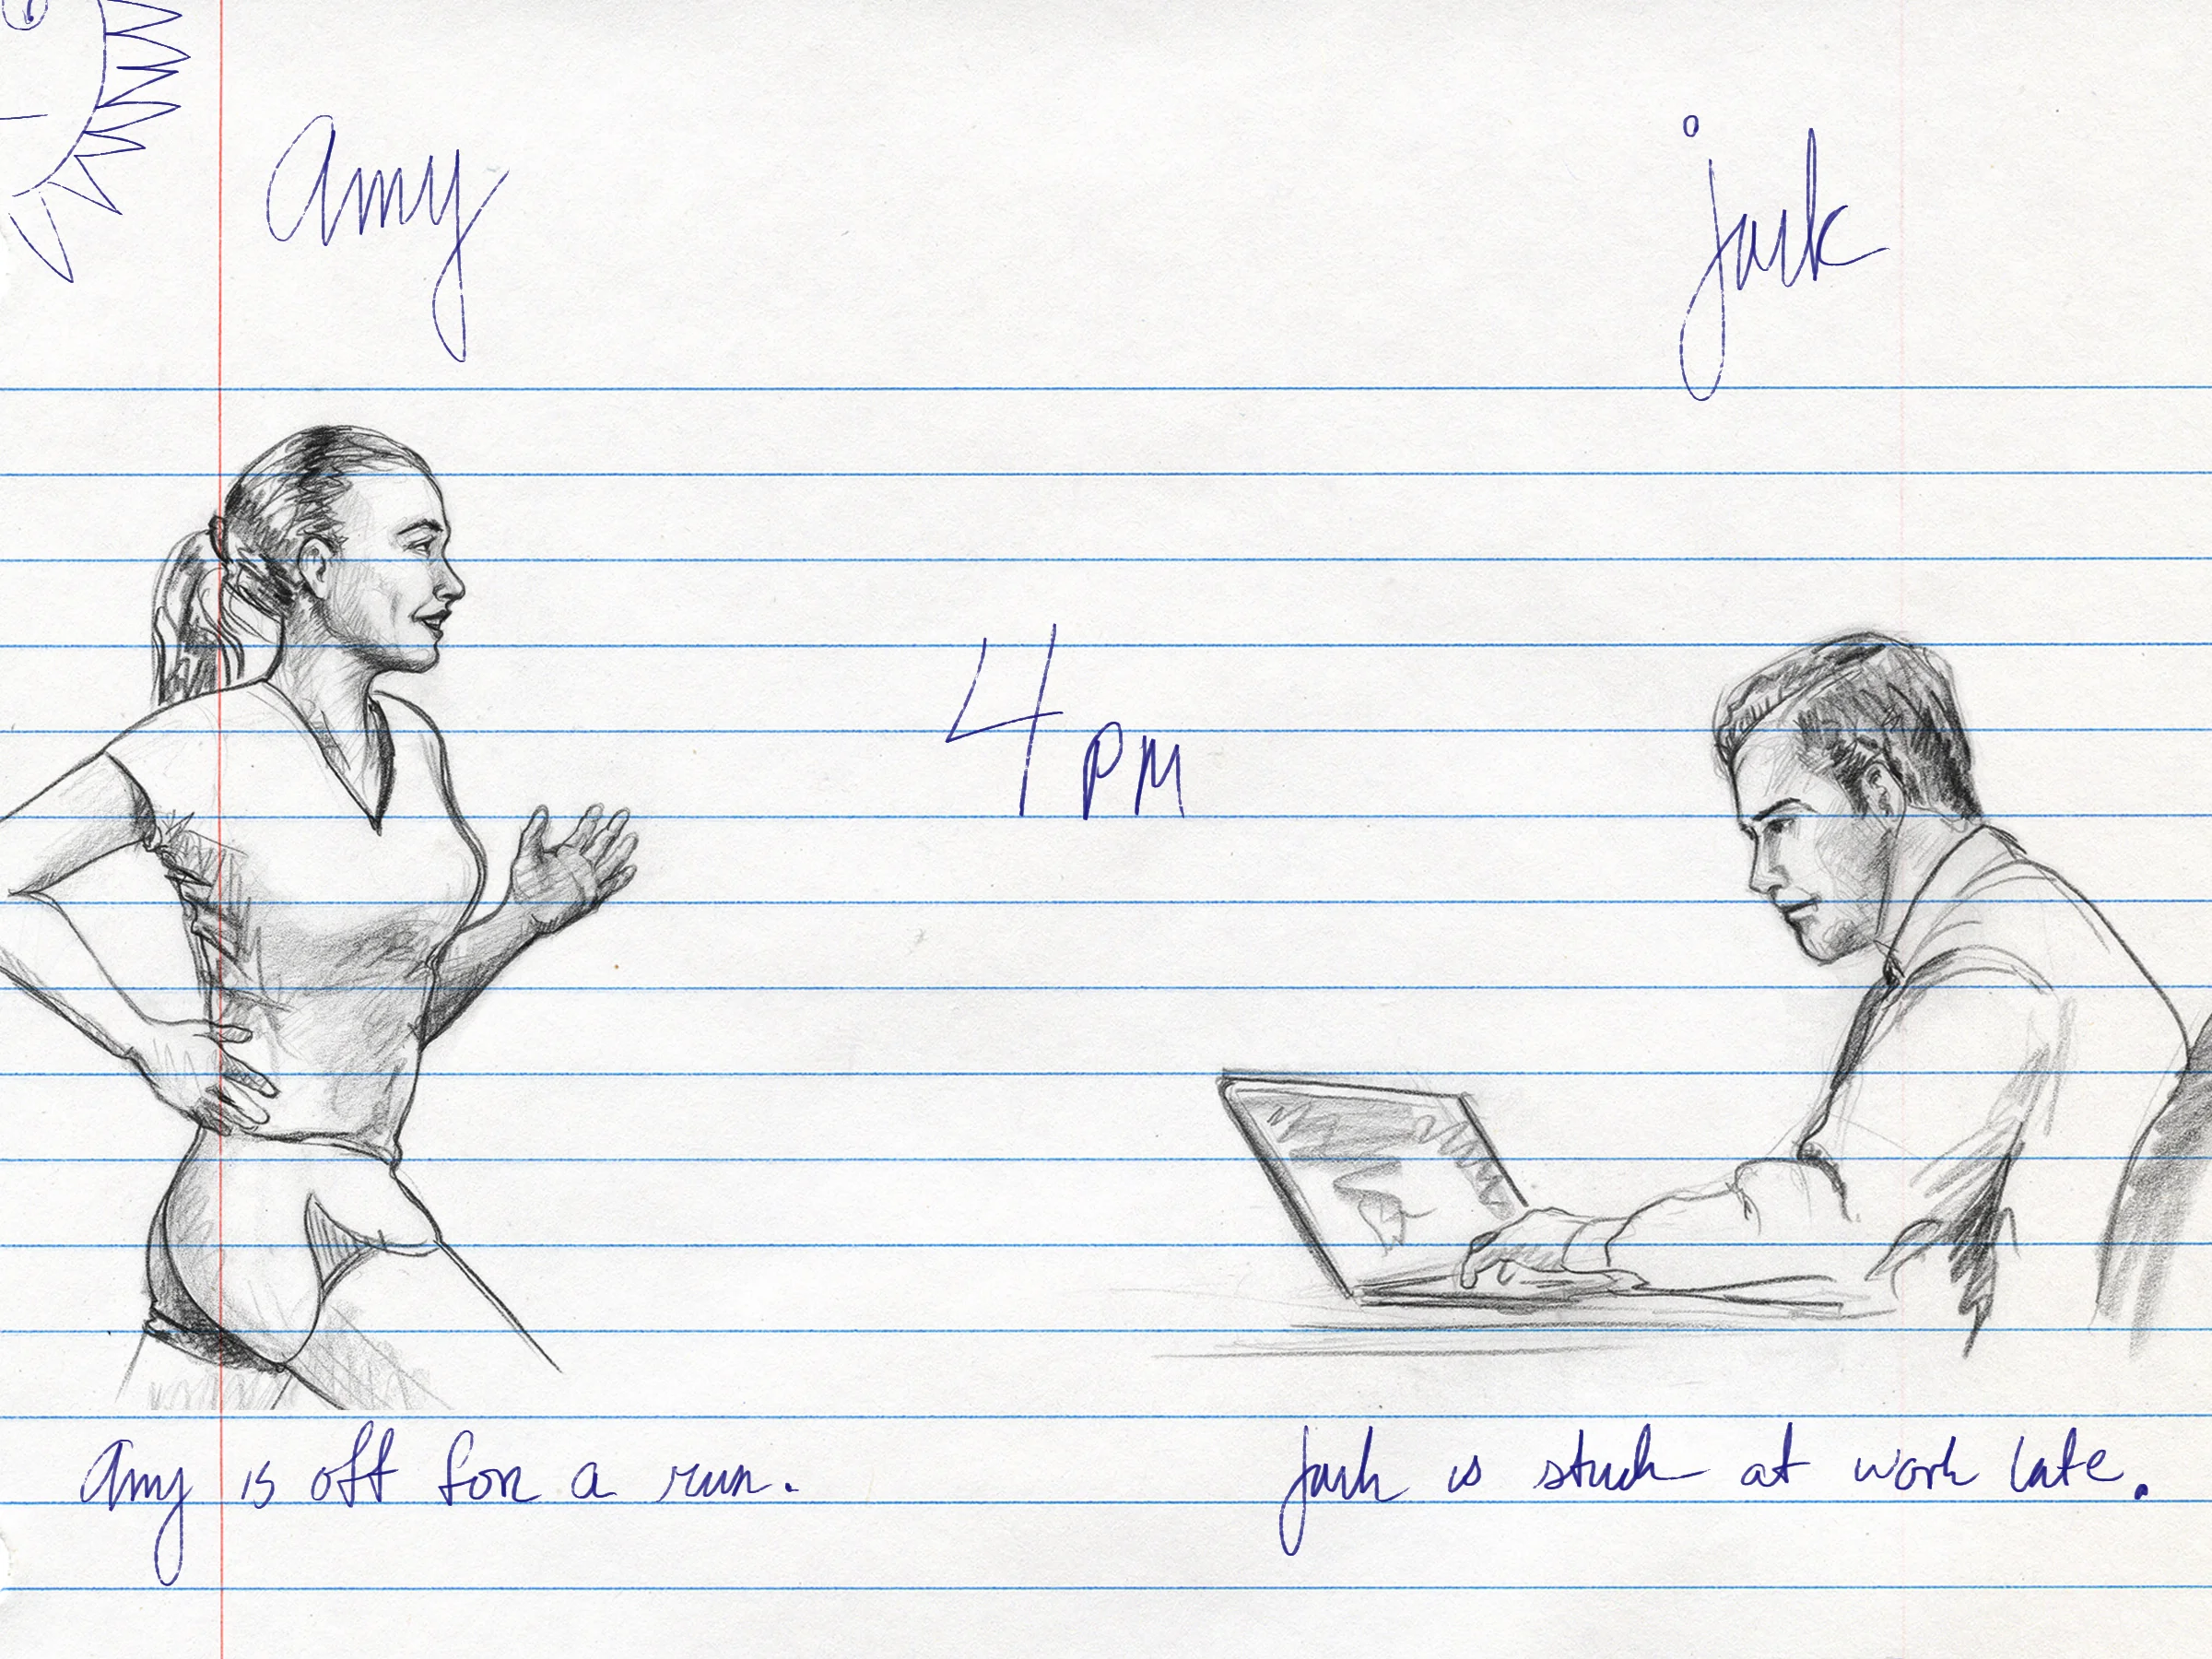 amy
jack
4 PM
Amy is off for a run.
Jack is stuck at work late.